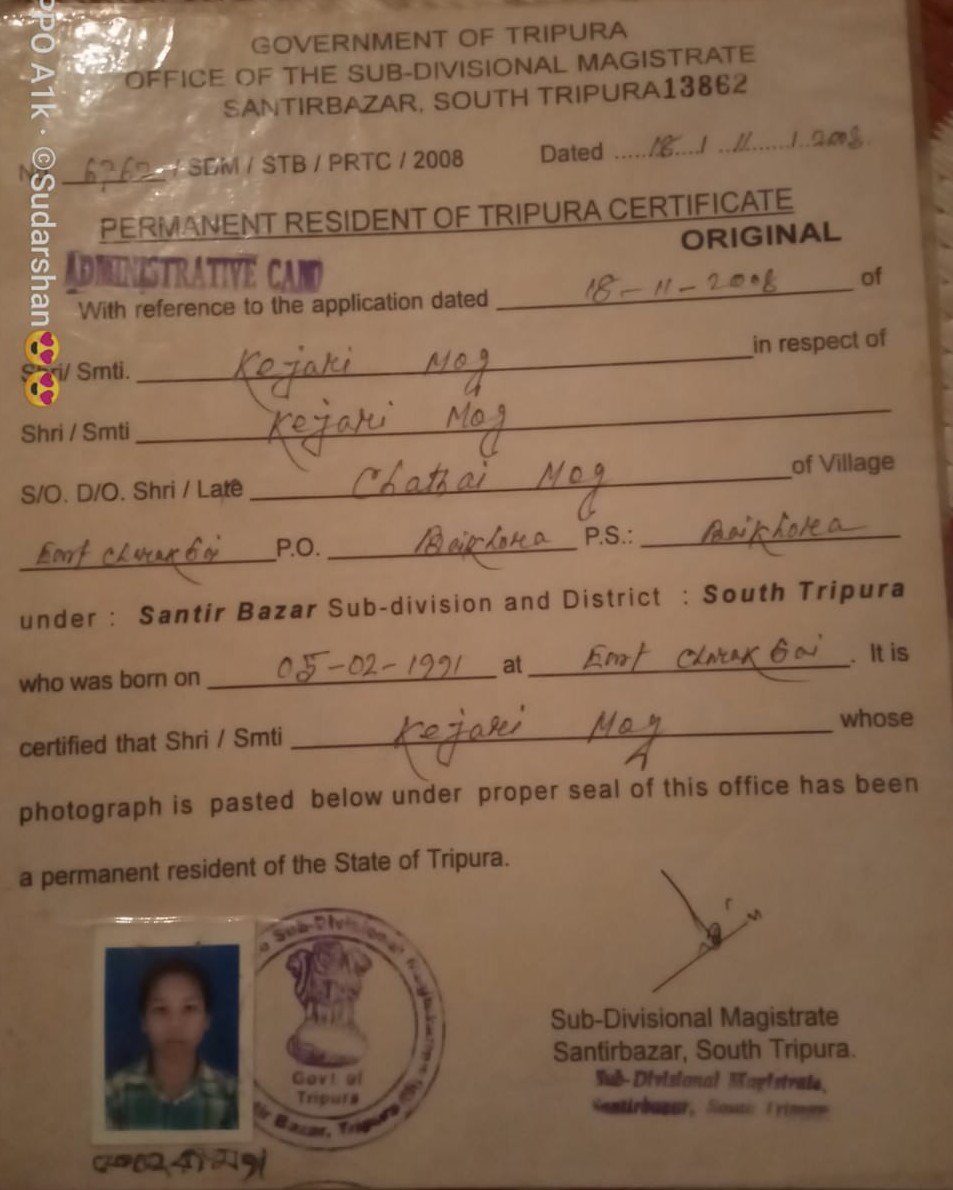 GOVERNMENT OF TRIPURA
OFFICE OF THE SUB-DIVISIONAL MAGISTRATE
SANTIRBAZAR, SOUTH TRIPURA 13862
/ SDM / STB / PRTC / 2008 Dated ......18.../...11....../.2008.
PERMANENT RESIDENT OF TRIPURA CERTIFICATE
ORIGINAL
ADMINISTRATIVE CAMP
With reference to the application dated 18-11-2008 of
Shri/ Smti. Kejari Mog in respect of
Shri / Smti Kejari Mog
S/O. D/O. Shri / Late Chathai Mog of Village
East P.O. Baikhora P.S.: Baikhora
under : Santir Bazar Sub-division and District : South Tripura
who was born on 05-02-1991 at East . It is
certified that Shri / Smti Kejari Mog whose
photograph is pasted below under proper seal of this office has been
a permanent resident of the State of Tripura.
Sub-Divisional
Govt of
Tripura
Bazar, Tripura
Sub-Divisional Magistrate
Santirbazar, South Tripura.
Sub-Divisional Magistrate,
Santirbazar, South Tripura
PPO A1k · ©Sudarshan😍😍